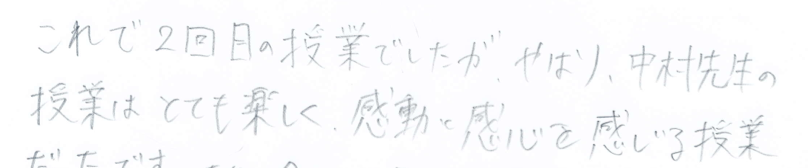 これで2回目の授業でしたが、やはり、中村先生の
授業はとても楽しく、感動と感心を感じる授業